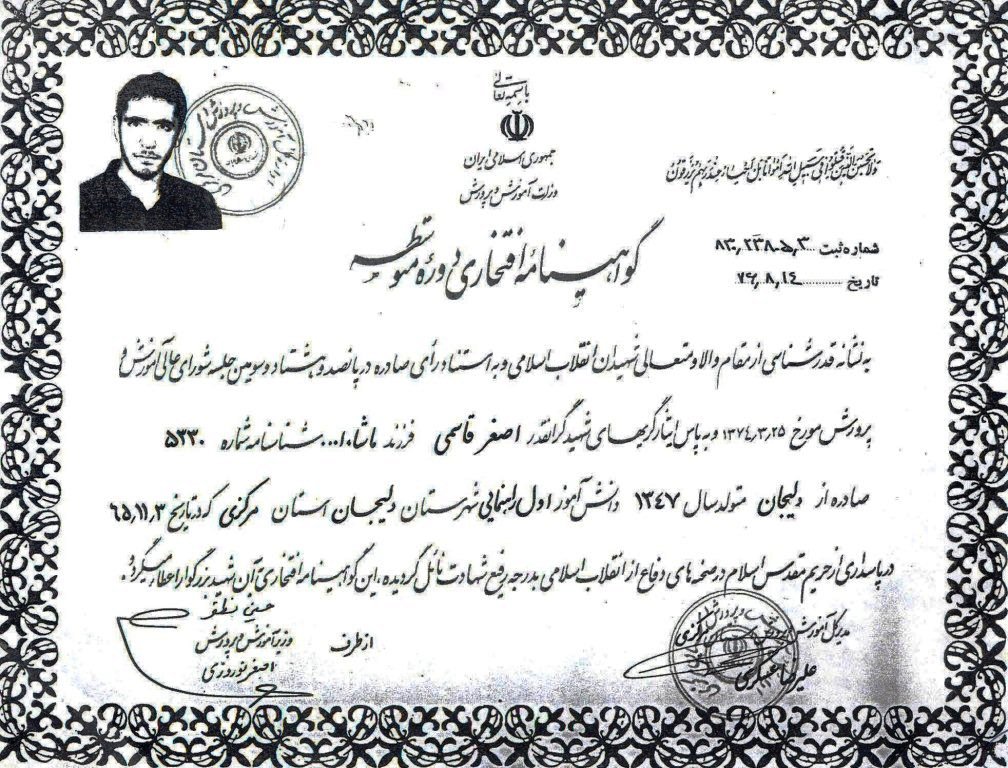 باسمه تعالی
جمهوری اسلامی ایران
وزارت آموزش و پرورش
ولا تحسبن الذین قتلوا فی سبیل الله امواتا بل احیاء عند ربهم یرزقون
شماره ثبت
تاریخ ۷۶٫۸٫۱۴
گواهینامه افتخاری دوره متوسطه
به نشانه قدرشناسی از مقام والا و متعالی شهیدان انقلاب اسلامی و به استناد رأی صادره در پانصد و هشتاد و سومین جلسه شورای عالی آموزش و
پرورش مورخ ۱۳۷۴٫۳٫۲۵ و به پاس ایثارگریهای شهید گرانقدر اصغر قاسمی فرزند ماشاءا... شناسنامه شماره ۵۳۳۰
صادره از دلیجان متولد سال ۱۳۴۷ دانش آموز اول راهنمایی شهرستان دلیجان استان مرکزی که در تاریخ ۶۵٫۱۱٫۳
در پاسداری از حریم مقدس اسلام در صحنه های دفاع از انقلاب اسلامی بدرجه رفیع شهادت نائل گردیده، این گواهینامه افتخاری آن شهید بزرگوار اعطاء میگردد.
مدیرکل آموزش و پرورش استان مرکزی
علیرضا عسگری
حسین مظفر
وزیر آموزش و پرورش
از طرف
اصغر نوروزی